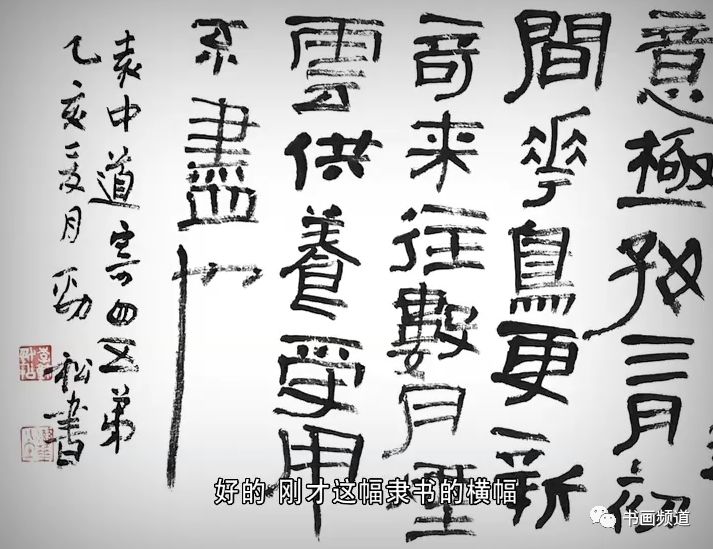 意極好三月初
間花鳥更新
奇来往數月煙
雲供養受用
不盡
袁中道寄四五弟
己亥夏月勁松書
好的 刚才这幅隶书的横幅
书画频道